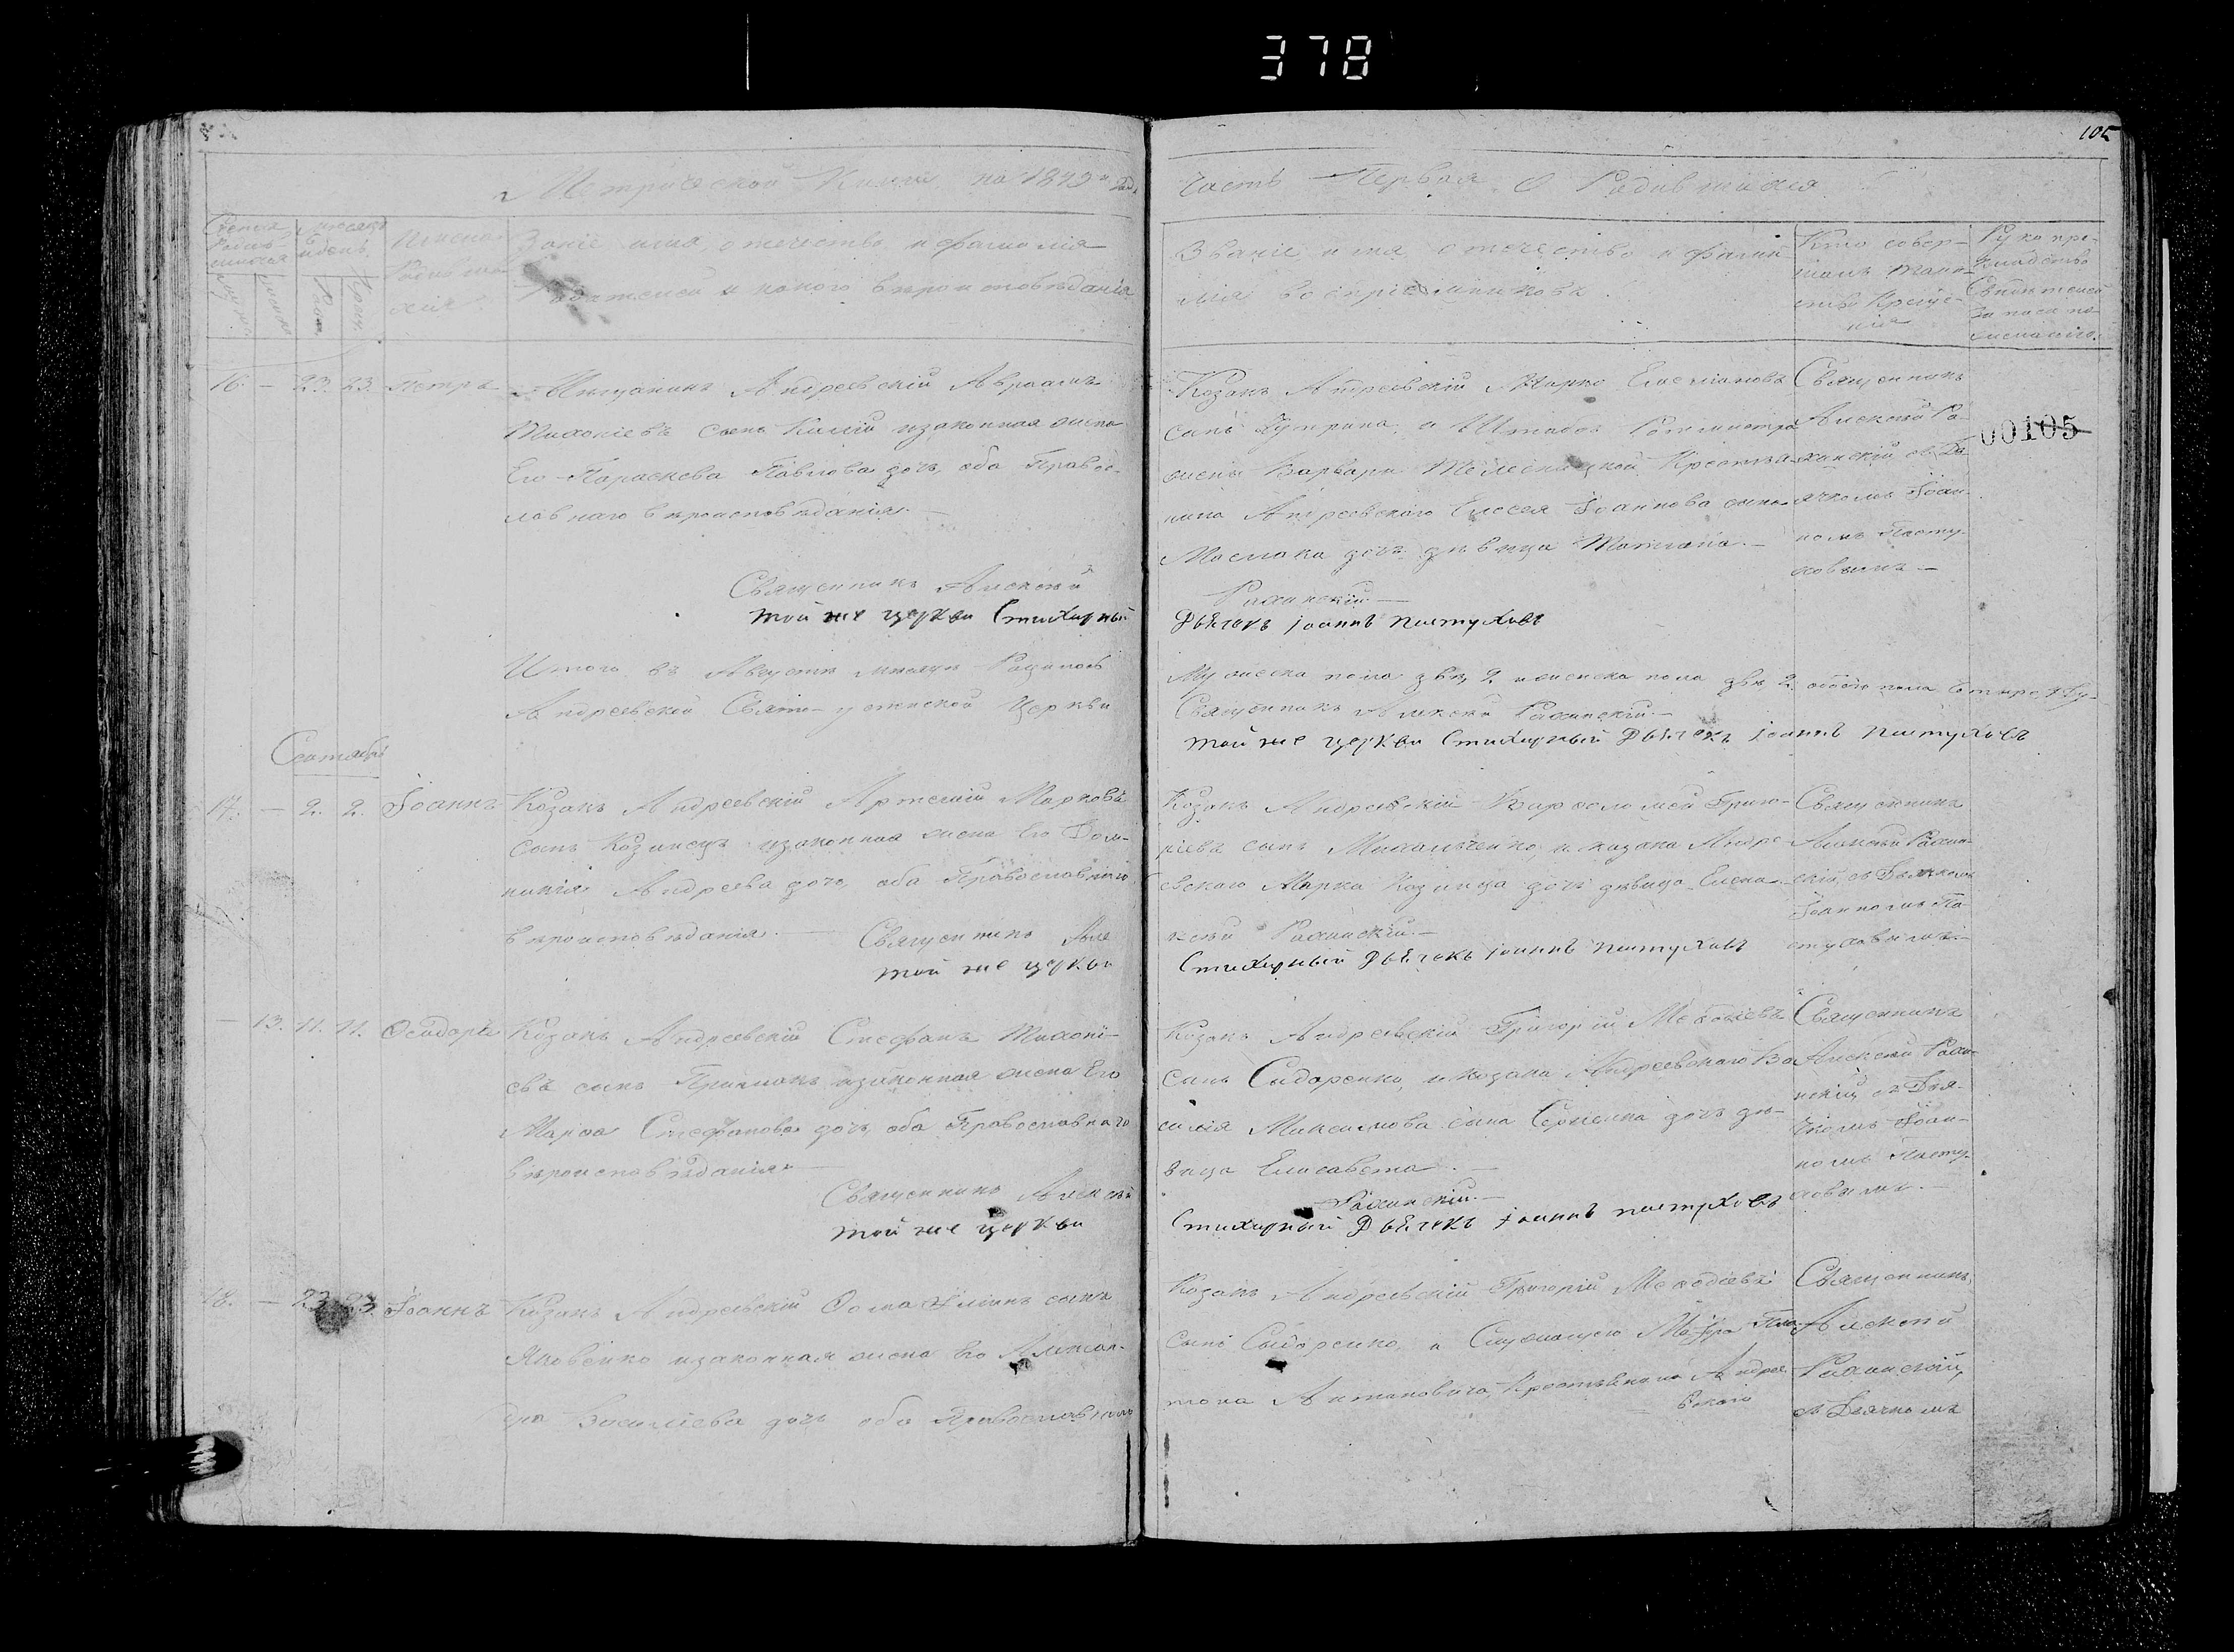 378
105
Метрической Книги на 1849й годъ
Часть Первая о Родившихся
Мужеска
Имена
Родившихся
Званіе имя, отечество и фамилія
Родителей и какого вѣроисповѣданія
Званіе имя отечество и фами-
лія воспріемниковъ.
Кто совер-
шалъ таин-
ство Креще-
нія
Рукопри-
кладство
Свидѣтелей
записи по
желанію.
16. — 23. 23. Петръ
Мещанинъ Андреевскій Авраамъ
Тихоніевъ сынъ изаконная жена
Его Параскева Павлова дочь, оба Правос-
лавнаго вѣроисповѣданія. —
Священникъ Алексѣй
той же церкви Стихарный
Козакъ Андреевскій Марко Емеліановъ
сынъ и Штабсъ Ротмистра
жены Варвары Крестья-
нина Андреевскаго Елесея Іоаннова сына
Маслака дочь дѣвица Татіана. —
Рахинскій —
Дьячекъ Іоаннъ Пастуховъ
Священникъ
Алексѣй Ра-
хинскій съ Дь-
ячкомъ Іоан-
номъ Пасту-
ховымъ. —
00105
Итого въ Августѣ мѣсяцѣ Родилось
Андреевской Свято- Церкви
Мужеска пола двѣ 2 и женска пола двѣ 2. обоего пола Четыре
Священникъ Алексѣй Рахинскій. —
той же церкви Стихарный Дьячекъ Іоаннъ Пастуховъ
Сентябрь
17. — 2. 2. Іоаннъ
Козакъ Андреевскій Артемій Марковъ
сынъ Козинецъ изаконная жена Его Дом-
никія Андреева дочь, оба Православнаго
вѣроисповѣданія. — Священникъ Але
той же церкви
Козакъ Андреевскій Варфоломей Григо-
ріевъ сынъ Михальченко, и козака Андре-
евскаго Марка Козинца дочь дѣвица Елена. —
ксѣй Рахинскій. —
Стихарный Дьячекъ Іоаннъ Пастуховъ
Священникъ
Алексѣй Рахин-
скій, съ Дьячкомъ
Іоанномъ Па-
стуховымъ. —
— 13. 11. 11. Ѳеодора
Козакъ Андреевскій Стефанъ Тихоні-
евъ сынъ Приймакъ изаконная жена Его
Марѳа Стефанова дочь, оба Православнаго
вѣроисповѣданія. —
Священникъ Алексѣй
той же церкви
Козакъ Андреевскій Григорій Меѳодіевъ
сынъ Сидоренко, и козака Андреевскаго Ва
силія Максимова сына дочь дѣ-
вица Елисавета. —
Рахинскій. —
Стихарный Дьячекъ Іоаннъ Пастуховъ
Священникъ
Алексѣй Рахи-
нскій, съ Дья-
чкомъ Іоан-
номъ Пасту-
ховымъ. —
18. — 23. 23. Іоаннъ
Козакъ Андреевскій Ѳома Иліинъ сынъ
Яковенко изаконная жена Его Алексан-
дра Василіева дочь оба Православнаго
Козакъ Андреевскій Григорій Меѳодіевъ
сынъ Сидоренко, и Служащего Пла-
тона Антоновича, Крестьянина Андре
евского
Священникъ
Алексѣй
Рахинскій,
съ Дьячкомъ